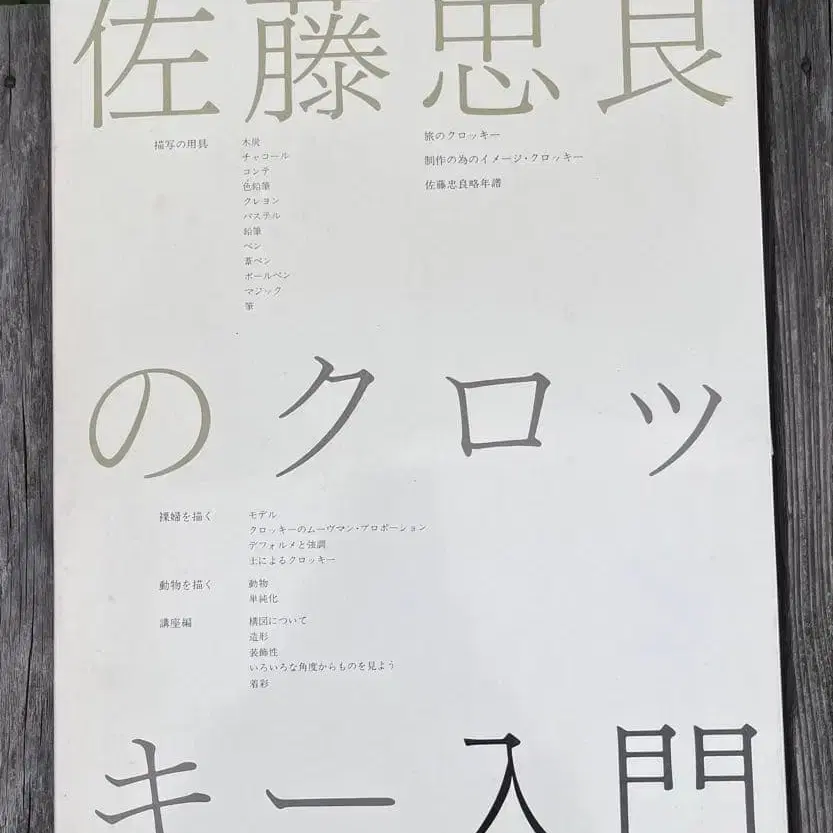 佐藤忠良
描写の用具
木炭
チャコール
コンテ
色鉛筆
クレヨン
パステル
鉛筆
ペン
葦ペン
ボールペン
マジック
筆
旅のクロッキー
制作の為のイメージ・クロッキー
佐藤忠良略年譜
のクロッ
裸婦を描く
モデル
クロッキーのムーヴマン・プロポーション
デフォルメと強調
土によるクロッキー
動物を描く
動物
単純化
講座編
構図について
造形
装飾性
いろいろな角度からものを見よう
着彩
キー入門